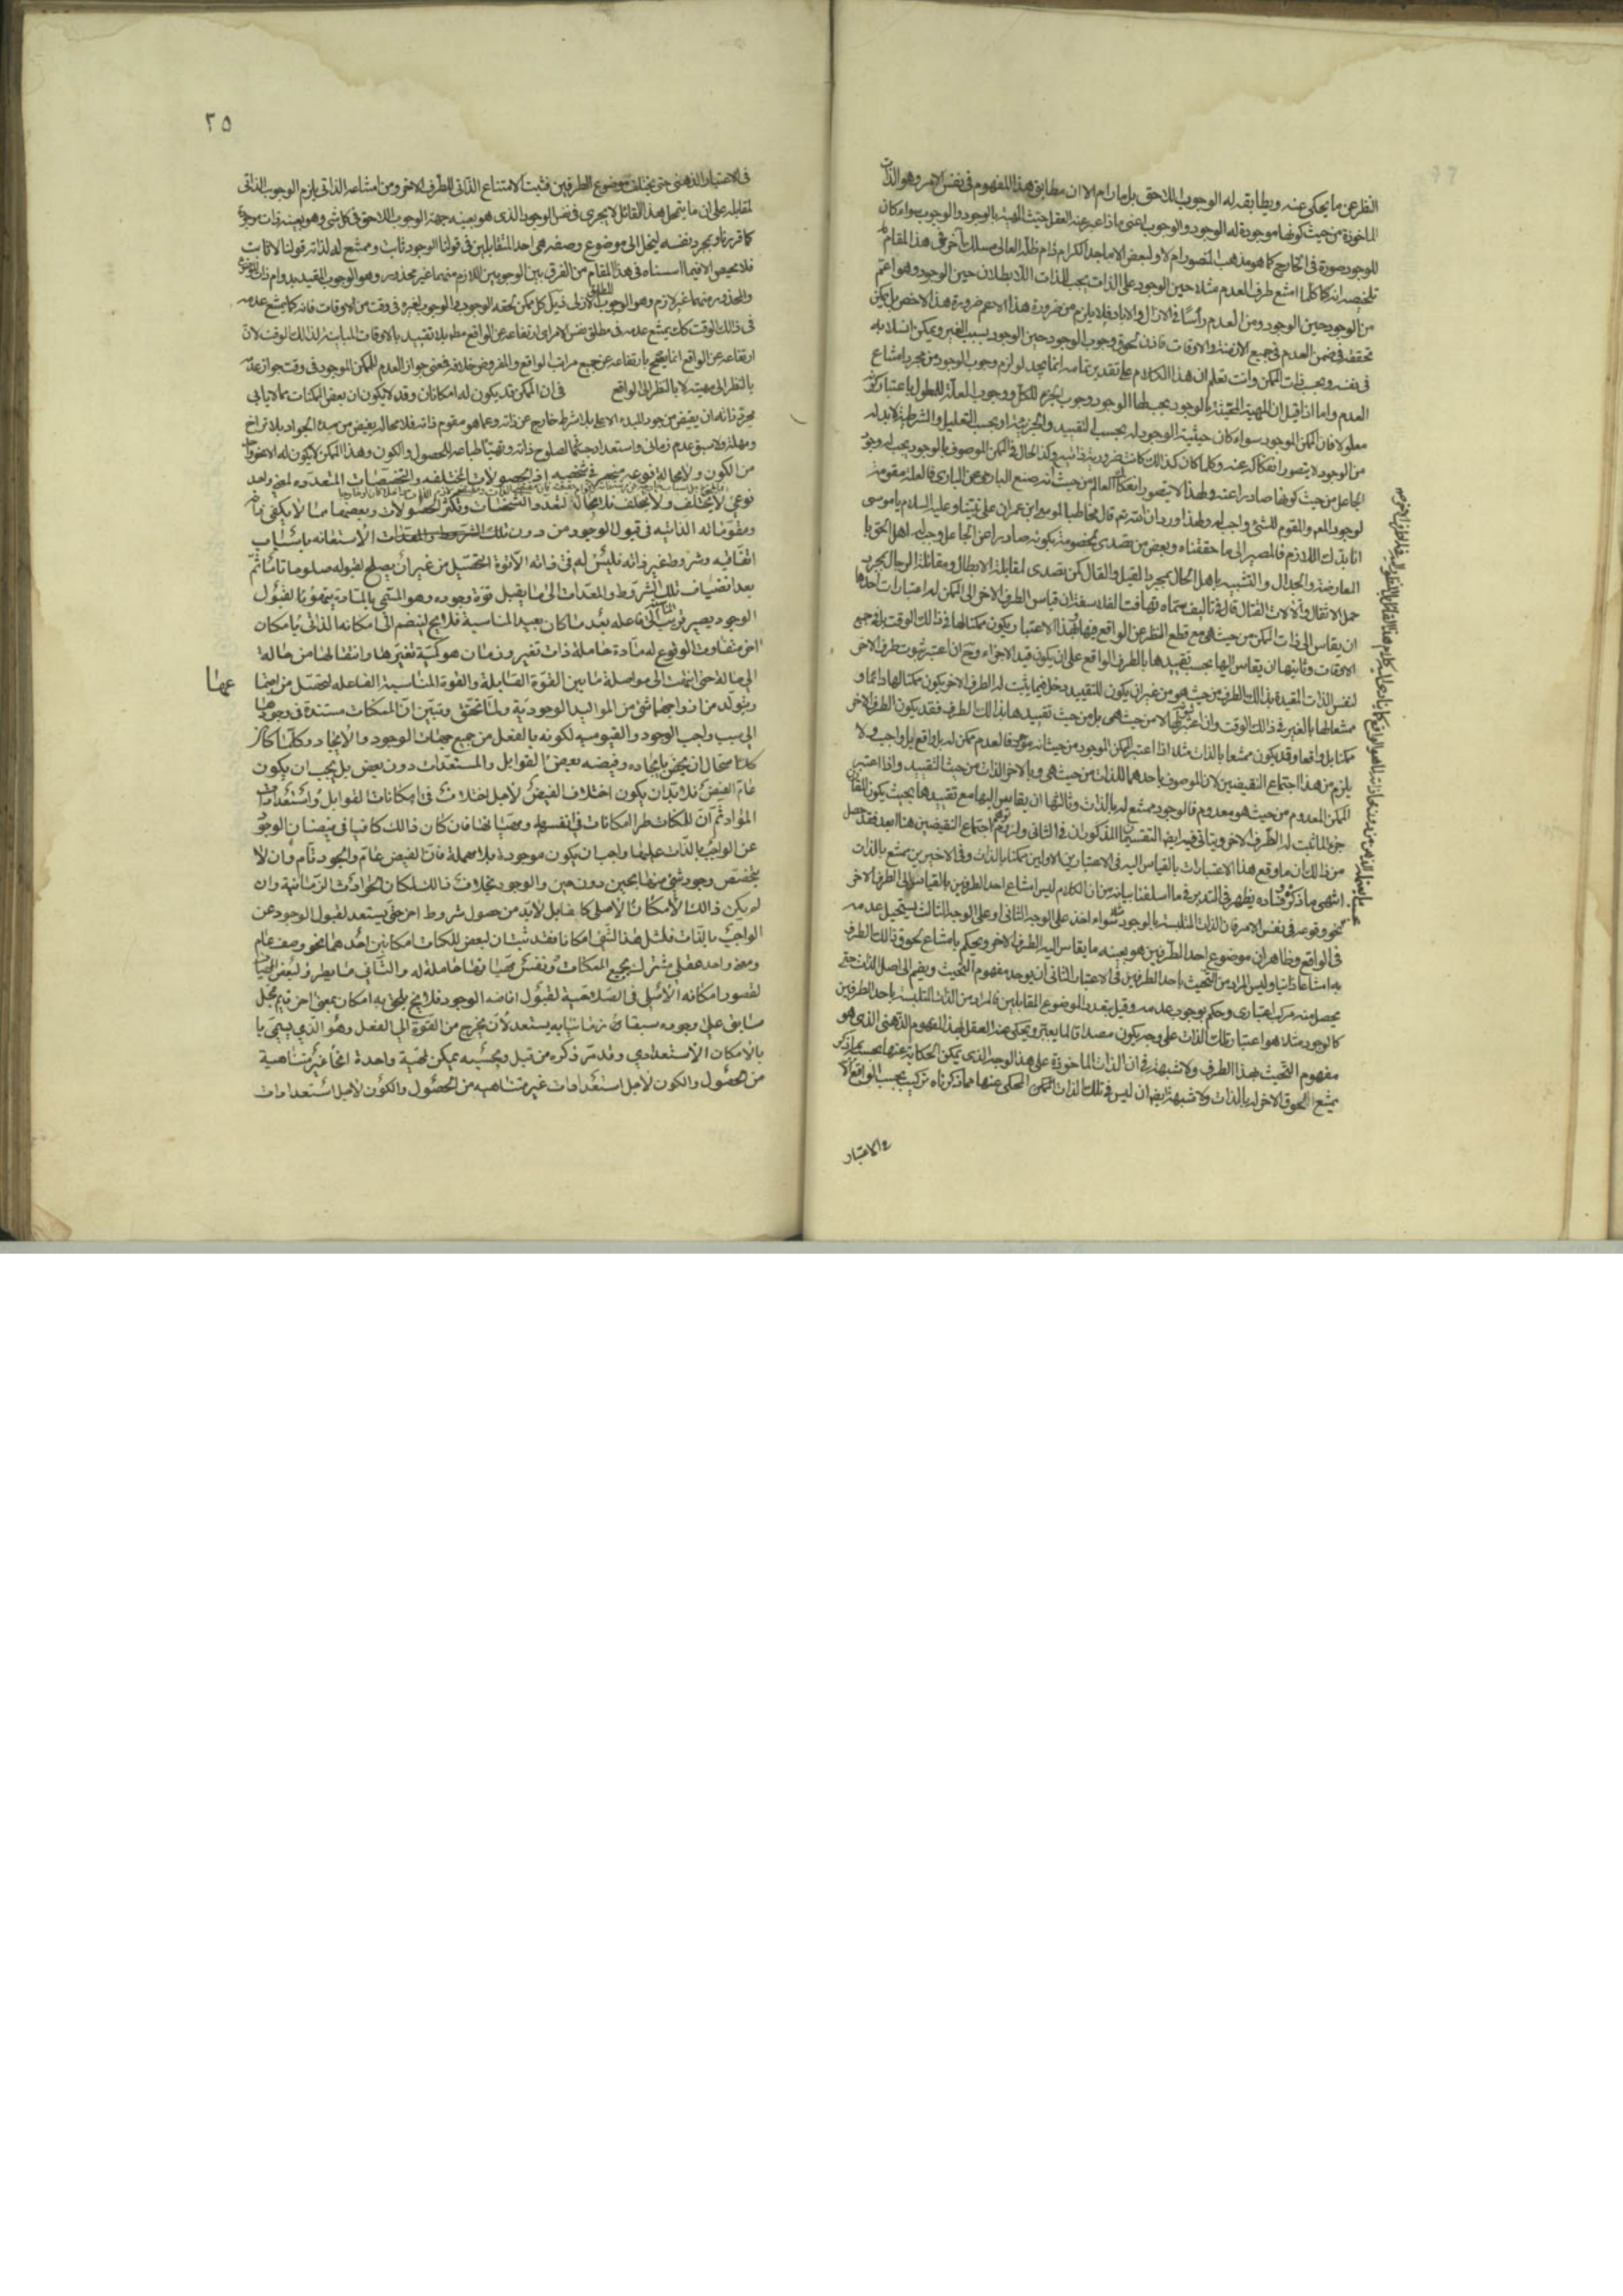 النظر عن ما يحكى عنه ويطابقه له الوجوب اللاحق بل ما دام الا ان مطابق هذا المفهوم فى نفس الامر وهو الذات
الماخوذة من حيث كونها موجودة له الوجود والوجوب اعنى ماذا عبر عنه العقل حيث الهيئة بالوجود والوجوب سواء كان
للوجود صورة فى الخارج كما هو مذهب المنصور ام لا ولبعض الاماجد الكرام دام ظله العالى مسلك آخر فى هذا المقام
تلخيصه انه كما كلما امتنع طرف العدم مثلا حين الوجود على الذات يجب للذات اللابطلان حين الوجود وهو اعم
من الوجود حين الوجود ومن العدم رأسا فى الازال والاباد فلا يلزم من ضرورة هذا الاعم ضرورة هذا الاخص بل يمكن
تحققه فى ضمن العدم فى جميع الازمنة والاوقات فاذن لحوق وجوب الوجود حين الوجود بسبب الغير ويمكن انسلابه
فى نفسه ويجب ذات الممكن وانت تعلم ان هذا الكلام على تقدير تمامه انما يجد لو لزم وجوب الوجود من مجرد امتناع
العدم واما اذا قيل ان المهية المحيثة بالوجود يجب لها الوجود وجوب الجزء للكل ووجوب العلة للمعلول باعتبار كونه
معلولا فان الممكن الموجود سواء كان حيثية الوجود له بحسب التقييد والجزئية او بحسب التعليل والشرطية لا بد له
من الوجود لا يتصور انفكاكه عنه وكلما كان كذلك كانت ضرورية ذاتية وكذا الحال فى الممكن الموصوف بالوجود يجب له وجود
الجاعل من حيث كونها صادرا عنه ولهذا لا يتصور انفكاك العالم من حيث انه صنع البارى عن البارى فالعلة مقومة
لوجود المعلول والمقوم للشئ واجب له ولهذا ورد ان الله تع قال مخاطبا لموسى ابن عمران على نبينا وعليه السلام يا موسى
انا بدك اللازم فالمصير الى ما حققناه وبعض من تصدى لخصومة بكونه صادرا عن الجاعل وجب له اهل الحق با
المعارضة والجدال والتشبيه باهل الحال بمجرد القيل والقال كمن تصدى لمقابلة الابطال ومقاتلة الرجال بمجرد
حمل الاثقال وآلات القتال قال فى تاليف سماه تهافت الفلاسفة ان قياس الطرف الاخر الى الممكن له اعتبارات احدها
ان يقاس الى ذات الممكن من حيث هى مع قطع النظر عن الواقع فيها فهذا الاعتبار يكون ممكنا لها فى ذلك الوقت بل فى جميع
الاوقات وثانيها ان يقاس اليها بحسب تقييدها بالطرف الواقع على ان يكون قيد الاجزاء وح ان اعتبر ثبوت طرف الاخر
لنفس الذات المقيدة بذلك الطرف من حيث هو من غير ان يكون للتقييد دخل فيما يثبت له الطرف الاخر يكون ممكنا لها دائما و
ممتنعا لها بالغير فى ذلك الوقت وان اعتبر ثبوته لها لا من حيث هى بل من حيث تقييدها بذلك الطرف فقد يكون الطرف الاخر
ممكنا بل واقعا وقد يكون ممتنعا بالذات مثلا اذا اعتبر الممكن الموجود من حيث انه موجود فالعدم ممكن له بل واقع بل واجب ولا
يلزم من هذا اجتماع النقيضين لان الموصوف باحدهما الذات من حيث هى وبالاخر الذات من حيث التقييد واذا اعتبر
الممكن المعدوم من حيث هو معدوم فالوجود ممتنع له بالذات وثالثها ان يقاس اليها مع تقييدها بحيث يكون التقييد
جزء لما ثبت له الطرف الاخر ويتاتى فيه ايضا التقسيمان المذكوران فى الثانى ولزوم اجتماع النقيضين هنا ابعد فقد حصل
من ذلك ان ما وقع هذا الاعتبارات بالقياس اليه فى الاعتبارين الاولين ممكنا بالذات وفى الاخيرين ممتنع بالذات
انتهى ما ذكره وفساده يظهر بالتدبر فيما اسلفنا بيانه من ان الكلام ليس امتناع احد الطرفين بالقياس الى الطرف الاخر
نحو وقوعه فى نفس الامر فان الذات المتلبسة بالوجود مثلا سواء اخذ على الوجه الثانى او على الوجه الثالث يستحيل عدمه
فى الواقع وظاهر ان موضوع احد الطرفين هو بعينه ما يقاس اليه الطرف الاخر ويحكم بامتناع لحوق ذلك الطرف
به امتناعا ذاتيا وليس المراد من التحيث باحد الطرفين فى الاعتبار الثانى ان يوجد مفهوم التحيث ويضم الى اصل الذات حتى
يحصل منه مركب اعتبارى وحكم بوجوب عدمه وقيل بتعدد الموضوع المقابلين فالمراد من الذات المتلبسة باحد الطرفين
كالوجود مثلا هو اعتبار تلك الذات على وجه يكون مصداقا لما يعتبر ويحكى عنه العقل بهذا المفهوم الذهنى الذى هو
مفهوم التحيث بهذا الطرف ولا شبهة فى ان الذات الماخوذة على هذا الوجه الذى يمكن الحكاية عنها بحسب ما ذكر
يمتنع لحوق الاخر له بالذات ولا شبهة ايضا ان ليس فى تلك الذات الممكن المحكى عنها مما ذكرناه تركيب بحسب الواقع الا
فى الاعتبار
٢٥
فى الاعتبار الذهنى حتى يختلف موضوع الطرفين فثبت الامتناع الذاتى للطرف الاخر ومن امتناعه الذاتى يلزم الوجوب الذاتى
لمقابله على ان ما يتحمل هذا القائل لا يجرى فى نفس الوجود الذى هو بعينه جهة الوجوب اللاحق فى كل شئ وهو بعينه ذات موجودة
كما قررناه وبمجرد نفسه لينحل الى موضوع وصفه هى احد المتقابلين فى قولنا الوجود ثابت وممتنع له لذاته قولنا لا ثابت
فلا محيص الا فيما اسسناه فى هذا المقام من الفرق بين الوجوبين اللازم منهما غير محذور وهو الوجوب المقيد بدوام ذات الموضوع
والمحذور منهما غير لازم وهو الوجوب المطلق الازلى كل ممكن لحقه الوجود والوجوب لغيره فى وقت من الاوقات فانه كما يمتنع عدمه
فى ذلك الوقت كك يمتنع عدمه فى مطلق نفس الامر اى ارتفاعه عن الواقع مطلقا بلا تقييد بالاوقات المباينة لذلك الوقت لان
ارتفاعه عن الواقع انما يصح بارتفاعه عن جميع مراتب الواقع والمفروض خلافه فمعنى جواز العدم للممكن الموجود فى وقت جواز عدمه
بالنظر الى مهيته لا بالنظر الى الواقع فى ان الممكن قد يكون له امكانان وقد لا يكون ان بعض الممكنات مما لا يابى
مجرد ذاته ان يفيض من جود المبدء الاعلى بلا شرط خارج عن ذاته وعما هو مقوم ذاته فلا محالة يفيض من مبدء الجواد بلا تراخ
ومهلة ولا سبق عدم زمانى واستعداد جسمانى لصلوح ذاته وتهيئا لطباعه للحصول والكون وهذا الممكن لا يكون له الا نحو واحد
من الكون ولا محالة نوعه منحصر فى شخصه اذ الحصولات المختلفة والتخصصات المتعددة لمعنى واحد
نوعى لا يختلف ولا يتخلف فلا محالة لتعدد التشخصات وتكثر الحصولات وبعضها مما لا يكفى ذاته
ومقوماته الذاتيه فى قبول الوجود من دون الاستعانه باسباب
اتفاقيه وشروط غير ذاته فليس له فى ذاته الا قوة التحصيل من غير ان يصلح لقبوله صلوحا تاما ثم
بعد انضياف تلك الشروط والمعدات الى ما يقبل قوة وجوده وهو المسمى بالمادة يتهيؤ لقبول
الوجود يصير قريب المناسبة الى فاعله بعد ما كان بعيد المناسبة فلا محالة ينضم الى امكانه الذاتى امكان
اخر متفاوت الوقوع له مادة حاملة ذات تغير وزمان هو كمية تغيرها وانتقالها من حالة
الى حالة حتى انتهت الى مواصلة ما بين القوة القابلة والقوة المناسبة الفاعله لتحصل من اجتما
عهما
ويتولد من ازدواجهما شئ من المواليد الوجودية ولما تحقق وتبين ان الممكنات مستندة فى وجودها
الى سبب واجب الوجود والقيوميه لكونه بالفعل من جميع جهات الوجود والايجاد وكلما كان
كذلك استحال ان يختص بايجاده وفيضه بعض القوابل والمستعدات دون بعض بل يجب ان يكون
عام الفيض فلا بد ان يكون اختلاف الفيض لاجل اختلاف فى امكانات القوابل واستعدادات
المواد ثم ان للممكنات طرا امكانات فى انفسها ومهياتها فان كان ذلك كافيا فى فيضان الوجود
عن الواجب بالذات عليها واجب ان يكون موجودة بلا مهلة فان الفيض عام والجود تام وان لا
يختص وجود شئ منها بحين دون حين والوجود بخلاف ذلك لمكان الحوادث الزمانية وان
لم يكن ذلك الامكان الاصلى كافيا بل لا بد من حصول شروط اخر حتى يستعد لقبول الوجود عن
الواجب بالذات فلمثل هذا الشئ امكانان فقد ثبت ان لبعض الممكنات امكانين احدهما هو وصف عام
ومعنى واحد عقلى مشترك بجميع الممكنات ونفس مهياتها حاملة له والثانى ما يطرو لبعض المهيات
لقصور امكانه الاصلى فى الصلاحية لقبول افاضه الوجود فلا محالة يلحق به امكان بمعنى اخر قائم بمحل
سابق على وجوده سبقا زمانيا به يستعد لان يخرج من القوة الى الفعل وهو الذى يسمى با
بالامكان الاستعدادى وقد مر ذكره من قبل وبحسبه يمكن لمهية واحدة انحاء غير متناهية
من الحصول والكون لاجل استعدادات غير متناهيه من الحصول والكون لاجل استعدادات